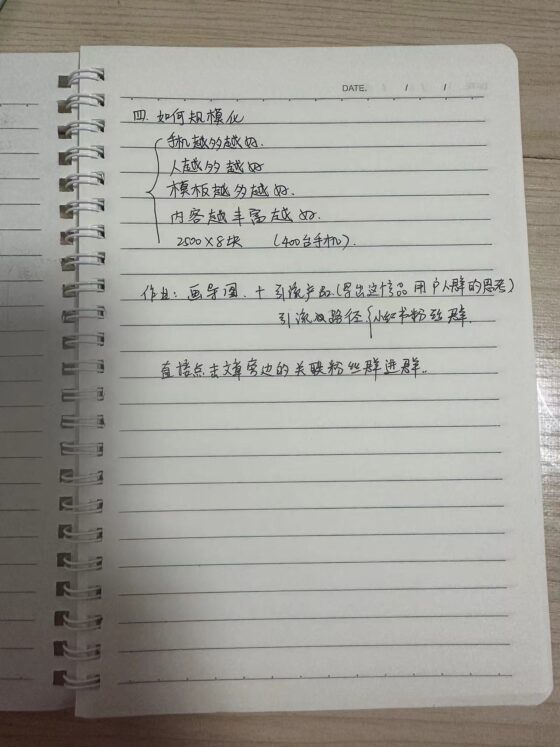 DATE. / /
四. 如何规模化
手机越多越好.
人越多越好
模板越多越好.
内容越丰富越好.
2500×8块 (400台手机).
作业: 画导图. + 引流产品(得出这个产品 用户人群的思考)
引流的路径{小红书粉丝群.
直接点击文章旁边的关联粉丝群进群.